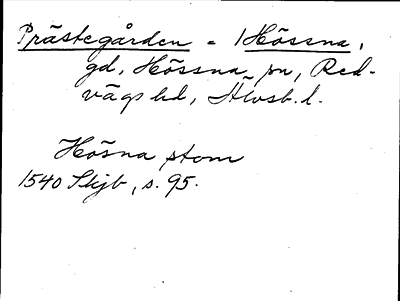 Prästegården = 1 Hössna,
gd, Hössna sn, Red-
vägs hd, Älvsb. l.
Hösna stom
1540 Skjb, s. 95.